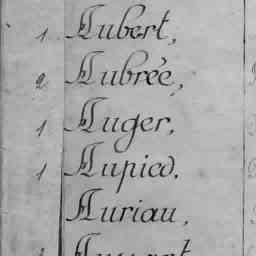 1. Aubert,
2. Aubrée,
1 Auger,
1 Aupied.
Auriau,